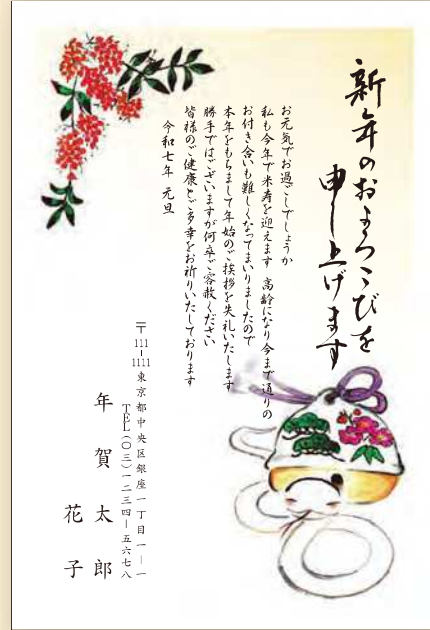 新年のおよろこびを
申し上げます
お元気でお過ごしでしょうか
私も今年で米寿を迎えます 高齢になり今まで通りの
お付き合いも難しくなってまいりましたので
本年をもちまして年始のご挨拶を失礼いたします
勝手ではございますが何卒ご容赦ください
皆様のご健康とご多幸をお祈りいたしております
令和七年 元旦
〒111-1111 東京都中央区銀座一丁目一-一
TEL(〇三)一二三四-五六七八
年賀 太郎
花子